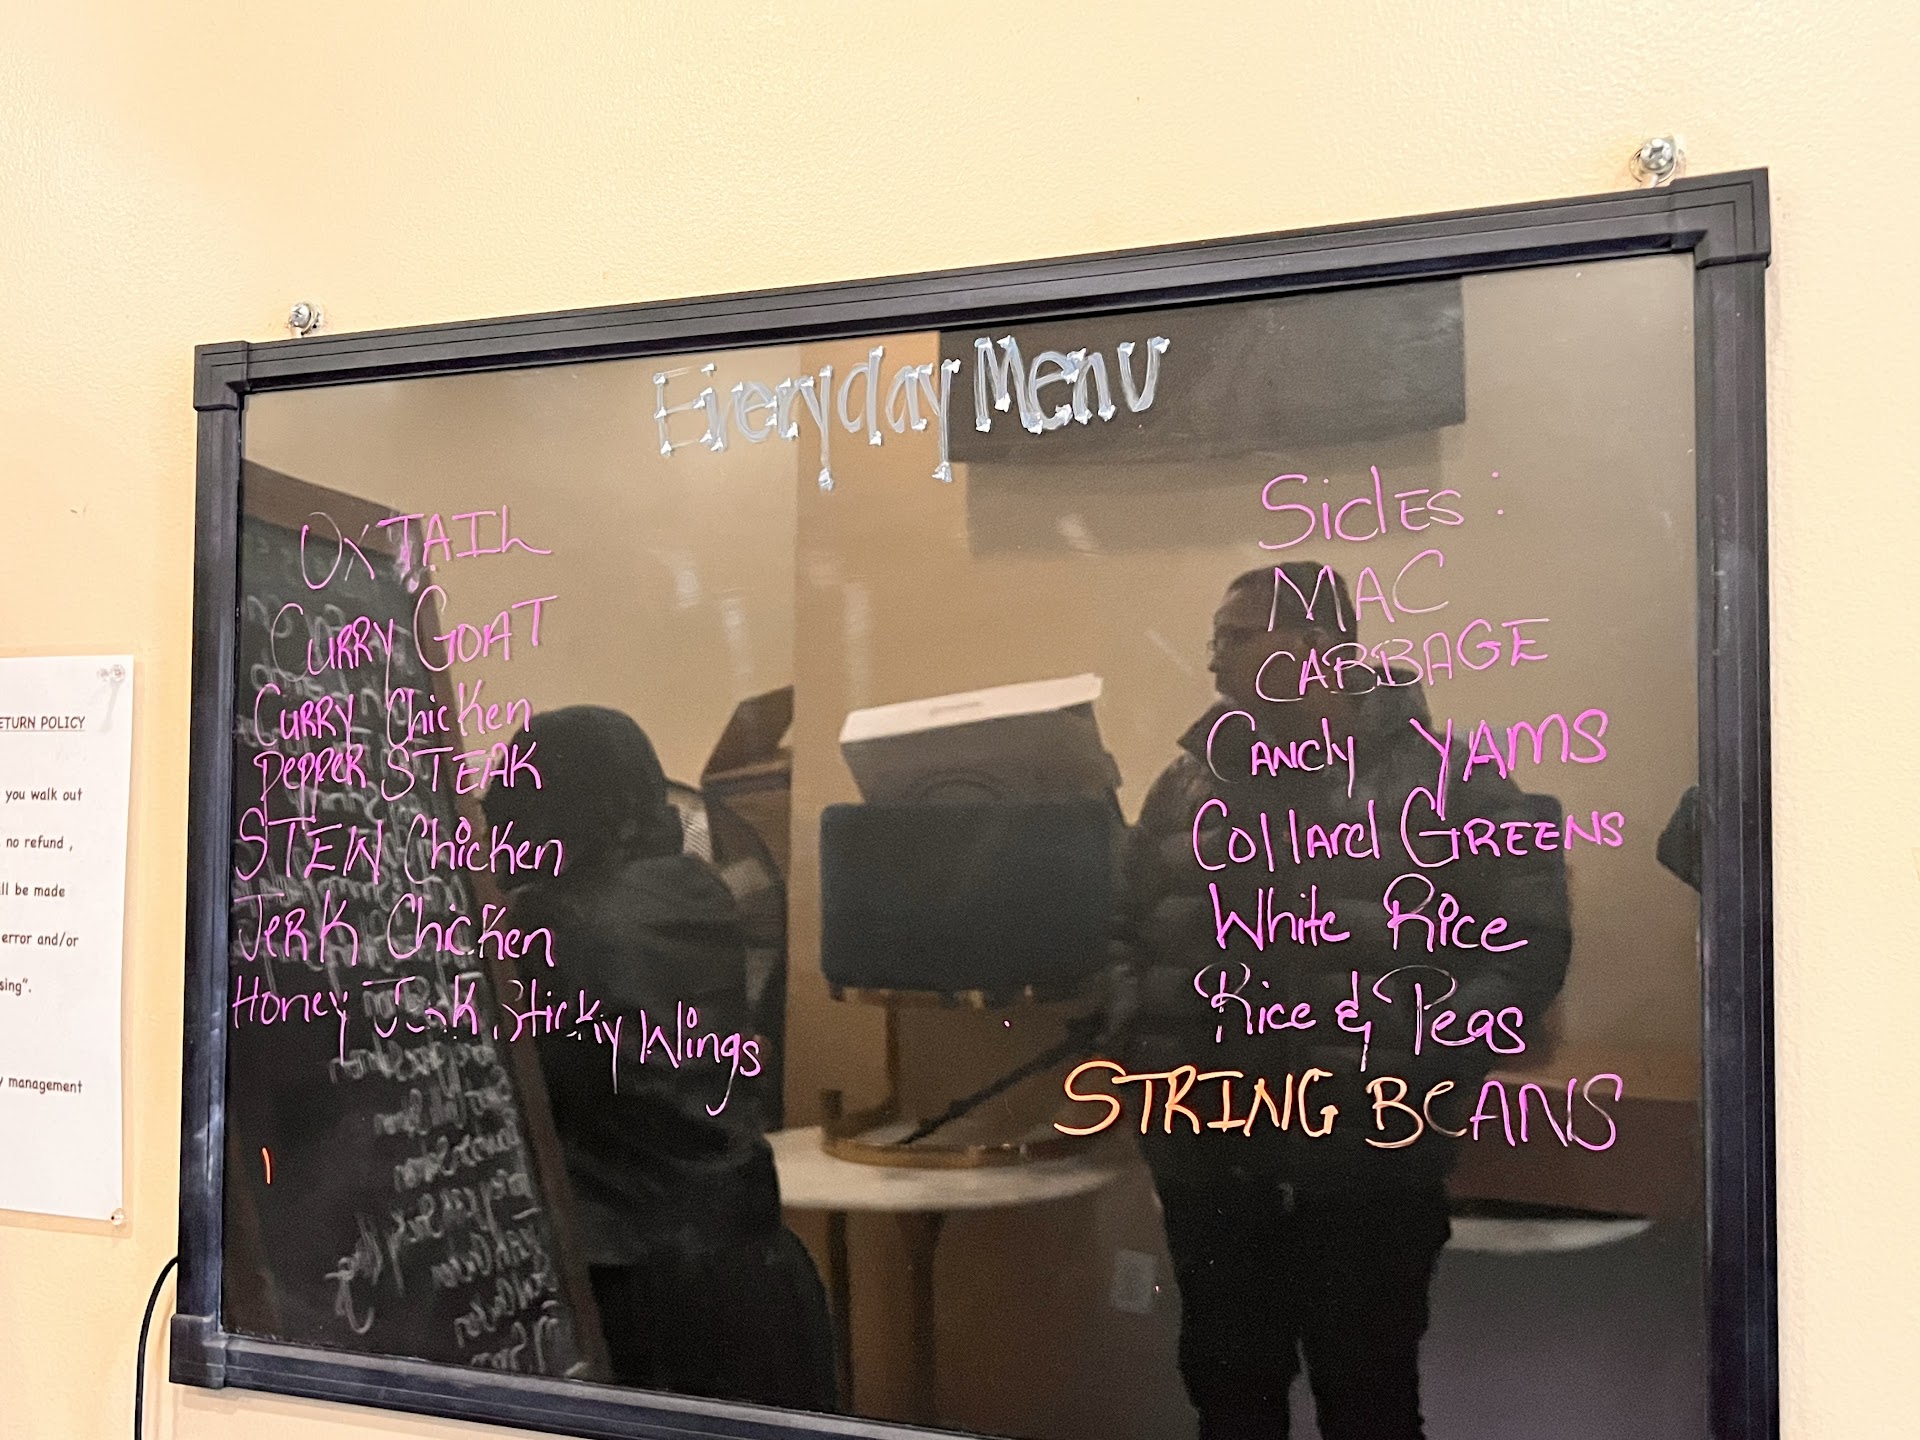 Everyday Menu
OXTAIL
CURRY GOAT
CURRY Chicken
PEPPER STEAK
STEW Chicken
JERK Chicken
Honey Jerk Sticky Wings
SidES:
MAC
CABBAGE
CANdy YAMS
Collard GREENS
White Rice
Rice & Peas
STRING BEANS
ETURN POLICY
you walk out
no refund ,
ll be made
error and/or
sing".
y management